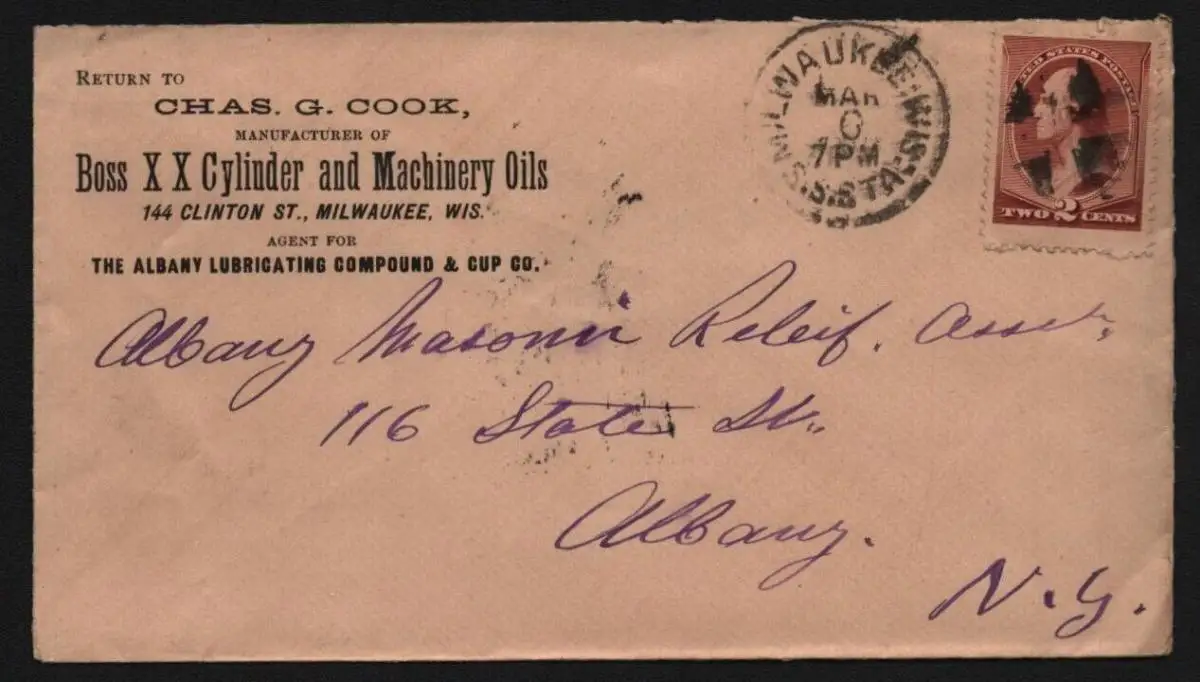 RETURN TO
CHAS. G. COOK,
MANUFACTURER OF
Boss X X Cylinder and Machinery Oils
144 CLINTON ST., MILWAUKEE, WIS.
AGENT FOR
THE ALBANY LUBRICATING COMPOUND & CUP CO.
MILWAUKEE, WIS.
MAR
7 PM
S.S. STA.
UNITED STATES POSTAGE
TWO 2 CENTS
Albany Masonic Releif. Assn.
116 State St.
Albany.
N.Y.